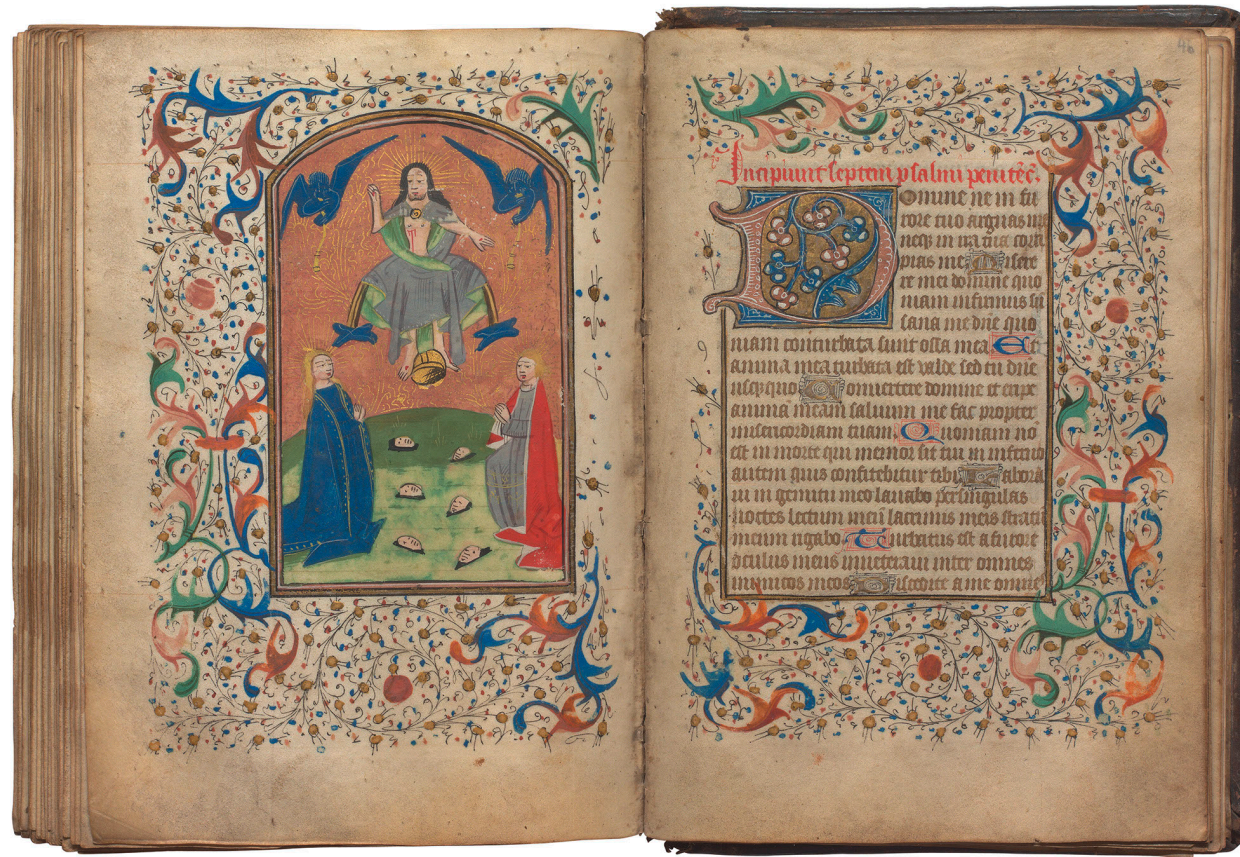 46
Incipiunt septem psalmi penitēc.
Domine ne in fu
rore tuo arguas me
neq; in ira tua corri
pias me Misere
re mei domine quo
niam infirmus sū
sana me dn̄e quo
niam conturbata sunt ossa mea Et
anima mea turbata est valde sed tu dn̄e
usq;quo Convertere domine et eripe
animā meam saluum me fac propter
misericordiam tuam Quoniam nō
est in morte qui memor sit tui in inferno
autem quis confitebitur tibi Labora
ui in gemitu meo lauabo per singulas
noctes lectum meū lacrimis meis stratū
meum rigabo Turbatus est a furore
oculus meus inueteraui inter omnes
inimicos meos Discedite a me omnes